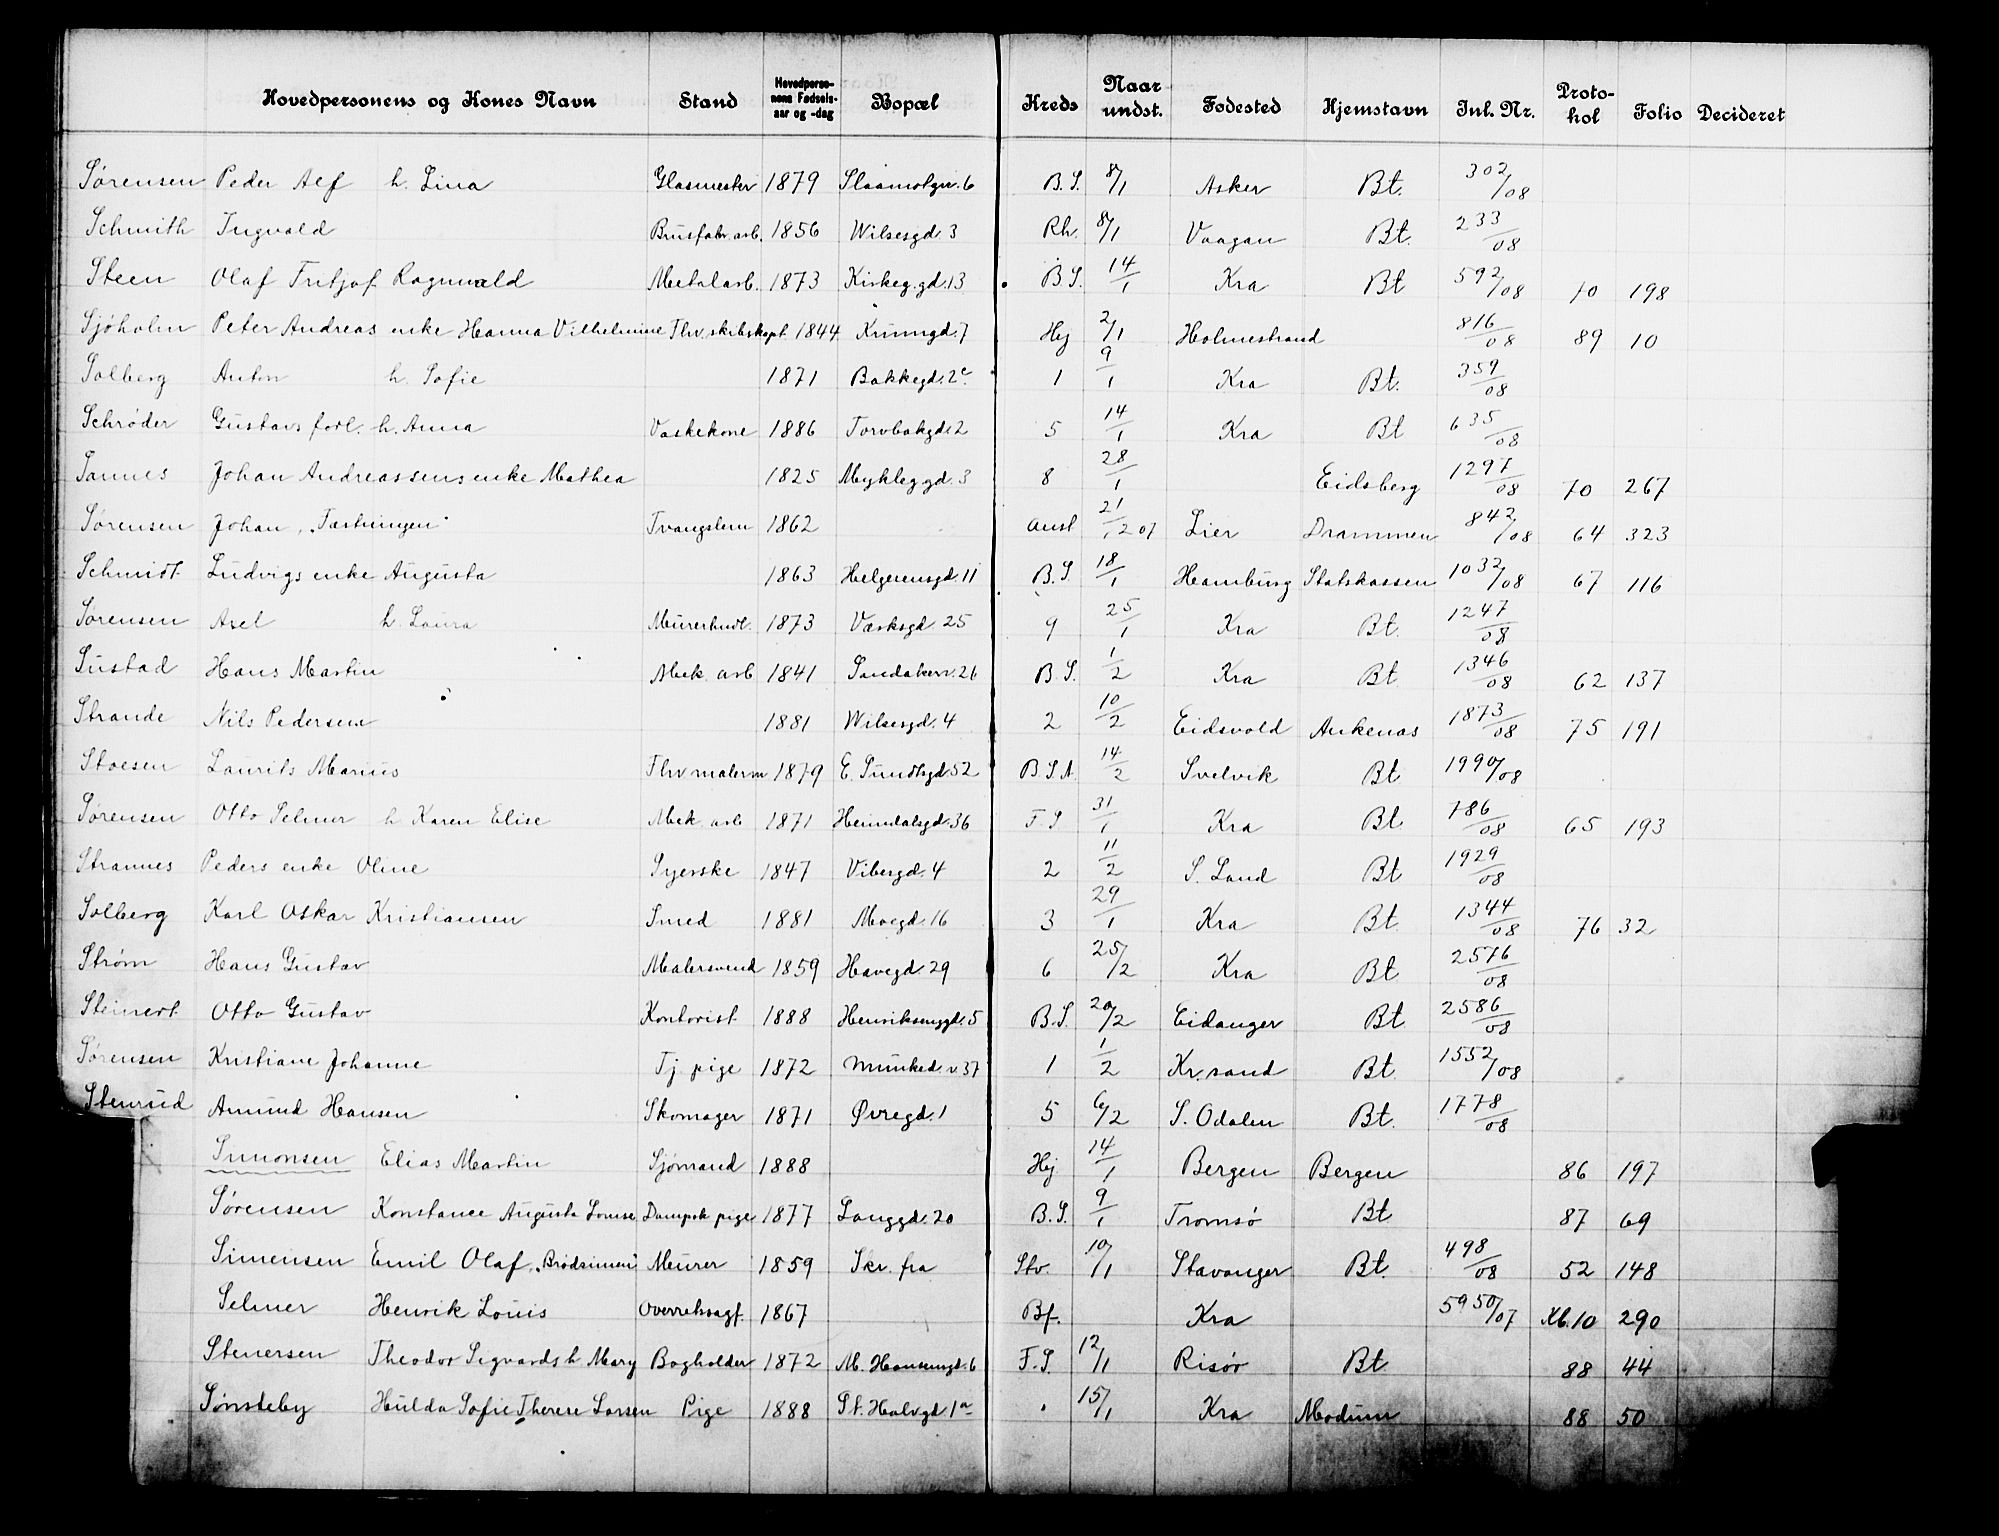 Hovedpersonens og Kones Navn Stand Hovedpersonens Fødselsaar og -dag Bopæl Kreds Naar undst. Fødested Hjemstavn Inl. Nr. Protokol Folio Decideret
Sørensen Peder Alf h. Lina Glasmester 1879 B.S. 8/1 Asker Bt. 302/08
Schmith Ingvald Brusfabr. arb. 1856 Wilsesgd. 3 Rh. 8/1 Vaagan Bt. 233/08
Steen Olaf Fritjof Ragnvald Metalarb. 1873 Kirkeg.gd. 13 B.S. 14/1 Kra Bt 592/08 70 198
Sjøholm Peter Andreas enke Hanna Vilhelmine Fhv. skibskapt. 1844 Krumgd. 7 Hej 2/1 Holmestrand 816/08 89 10
Solberg Anton h. Sofie 1871 Bakkegd. 2c 1 9/1 Kra Bt. 359/08
Schrøder Gustavs forl. h. Anna Vaskekone 1886 Torvbakgd. 2 5 14/1 Kra Bt 635/08
Sannes Johan Andreassens enke Mathea 1825 Mykleggd. 3 8 28/1 Eidsberg 1297/08 70 267
Sørensen Johan „Tæstningen" Tvangslem 1862 Anst 21/12 07 Lier Drammen 842/08 64 323
Schmidt Ludvigs enke Augusta 1863 Helgesensgd. 11 B.S. 18/1 Hamburg Statskassen 1032/08 67 116
Sørensen Axel h. Laura Murerhndt. 1873 Værksgd. 25 9 25/1 Kra Bt. 1247/08
Sustad Hans Martin Mek. arb 1841 Sandakerv. 26 B.S. 1/2 Kra Bt. 1346/08 62 137
Strande Nils Pedersen 1881 Wilsesgd. 4 2 10/2 Eidsvold Ankenæs 1873/08 75 191
Stoesen Laurits Marius Fhv malerm 1879 E. Sundtsgd. 52 B.S.A. 14/2 Svelvik Bt 1990/08
Sørensen Otto Selmer h Karen Elise Mek. arb 1871 Heimdalsgd. 36 F.S 31/1 Kra Bt 786/08 65 193
Strannes Peders enke Oline Syerske 1847 Vibesgd. 4 2 11/2 S. Land Bt 1929/08
Solberg Karl Oskar Kristiansen Smed 1881 Moegd. 16 3 29/1 Kra Bt. 1344/08 76 32
Strøm Hans Gustav Malersvend 1859 Havegd. 29 6 25/2 Kra Bt 2576/08
Steinert Otto Gustav Kontorist 1888 Henriksensgd. 5 B.S. 20/2 Eidanger Bt 2586/08
Sørensen Kristiane Johanne Tj. pige 1872 Munked. v. 37 1 1/2 Kr.sand Bt. 1552/08
Stenrud Amund Hansen Skomager 1871 Øvregd. 1 5 6/2 S. Odalen Bt. 1778/08
Simonsen Elias Martin Sjømand 1888 Hej 14/1 Bergen Bergen 86 197
Sørensen Konstance Augusta Lovise Dampsk pige 1877 Langgd. 20 B.S. 9/1 Tromsø Bt 87 69
Simensen Emil Olaf „Brødsimen" Murer 1859 Skr. fra Stv. 10/1 Stavanger Bt. 498/08 52 148
Selmer Henrik Louis Overretssagf. 1867 Bf. Kra 5950/07 Kb. 10 290
Stenersen Theodor Sigvards h Mary Bogholder 1872 M. Hansensgd. 6 F.S. 12/1 Risør Bt 88 44
Sønsteby Hulda Sofie Therese Larsen Pige 1888 St. Halvgd. 1a 15/1 Kra Modum 88 50